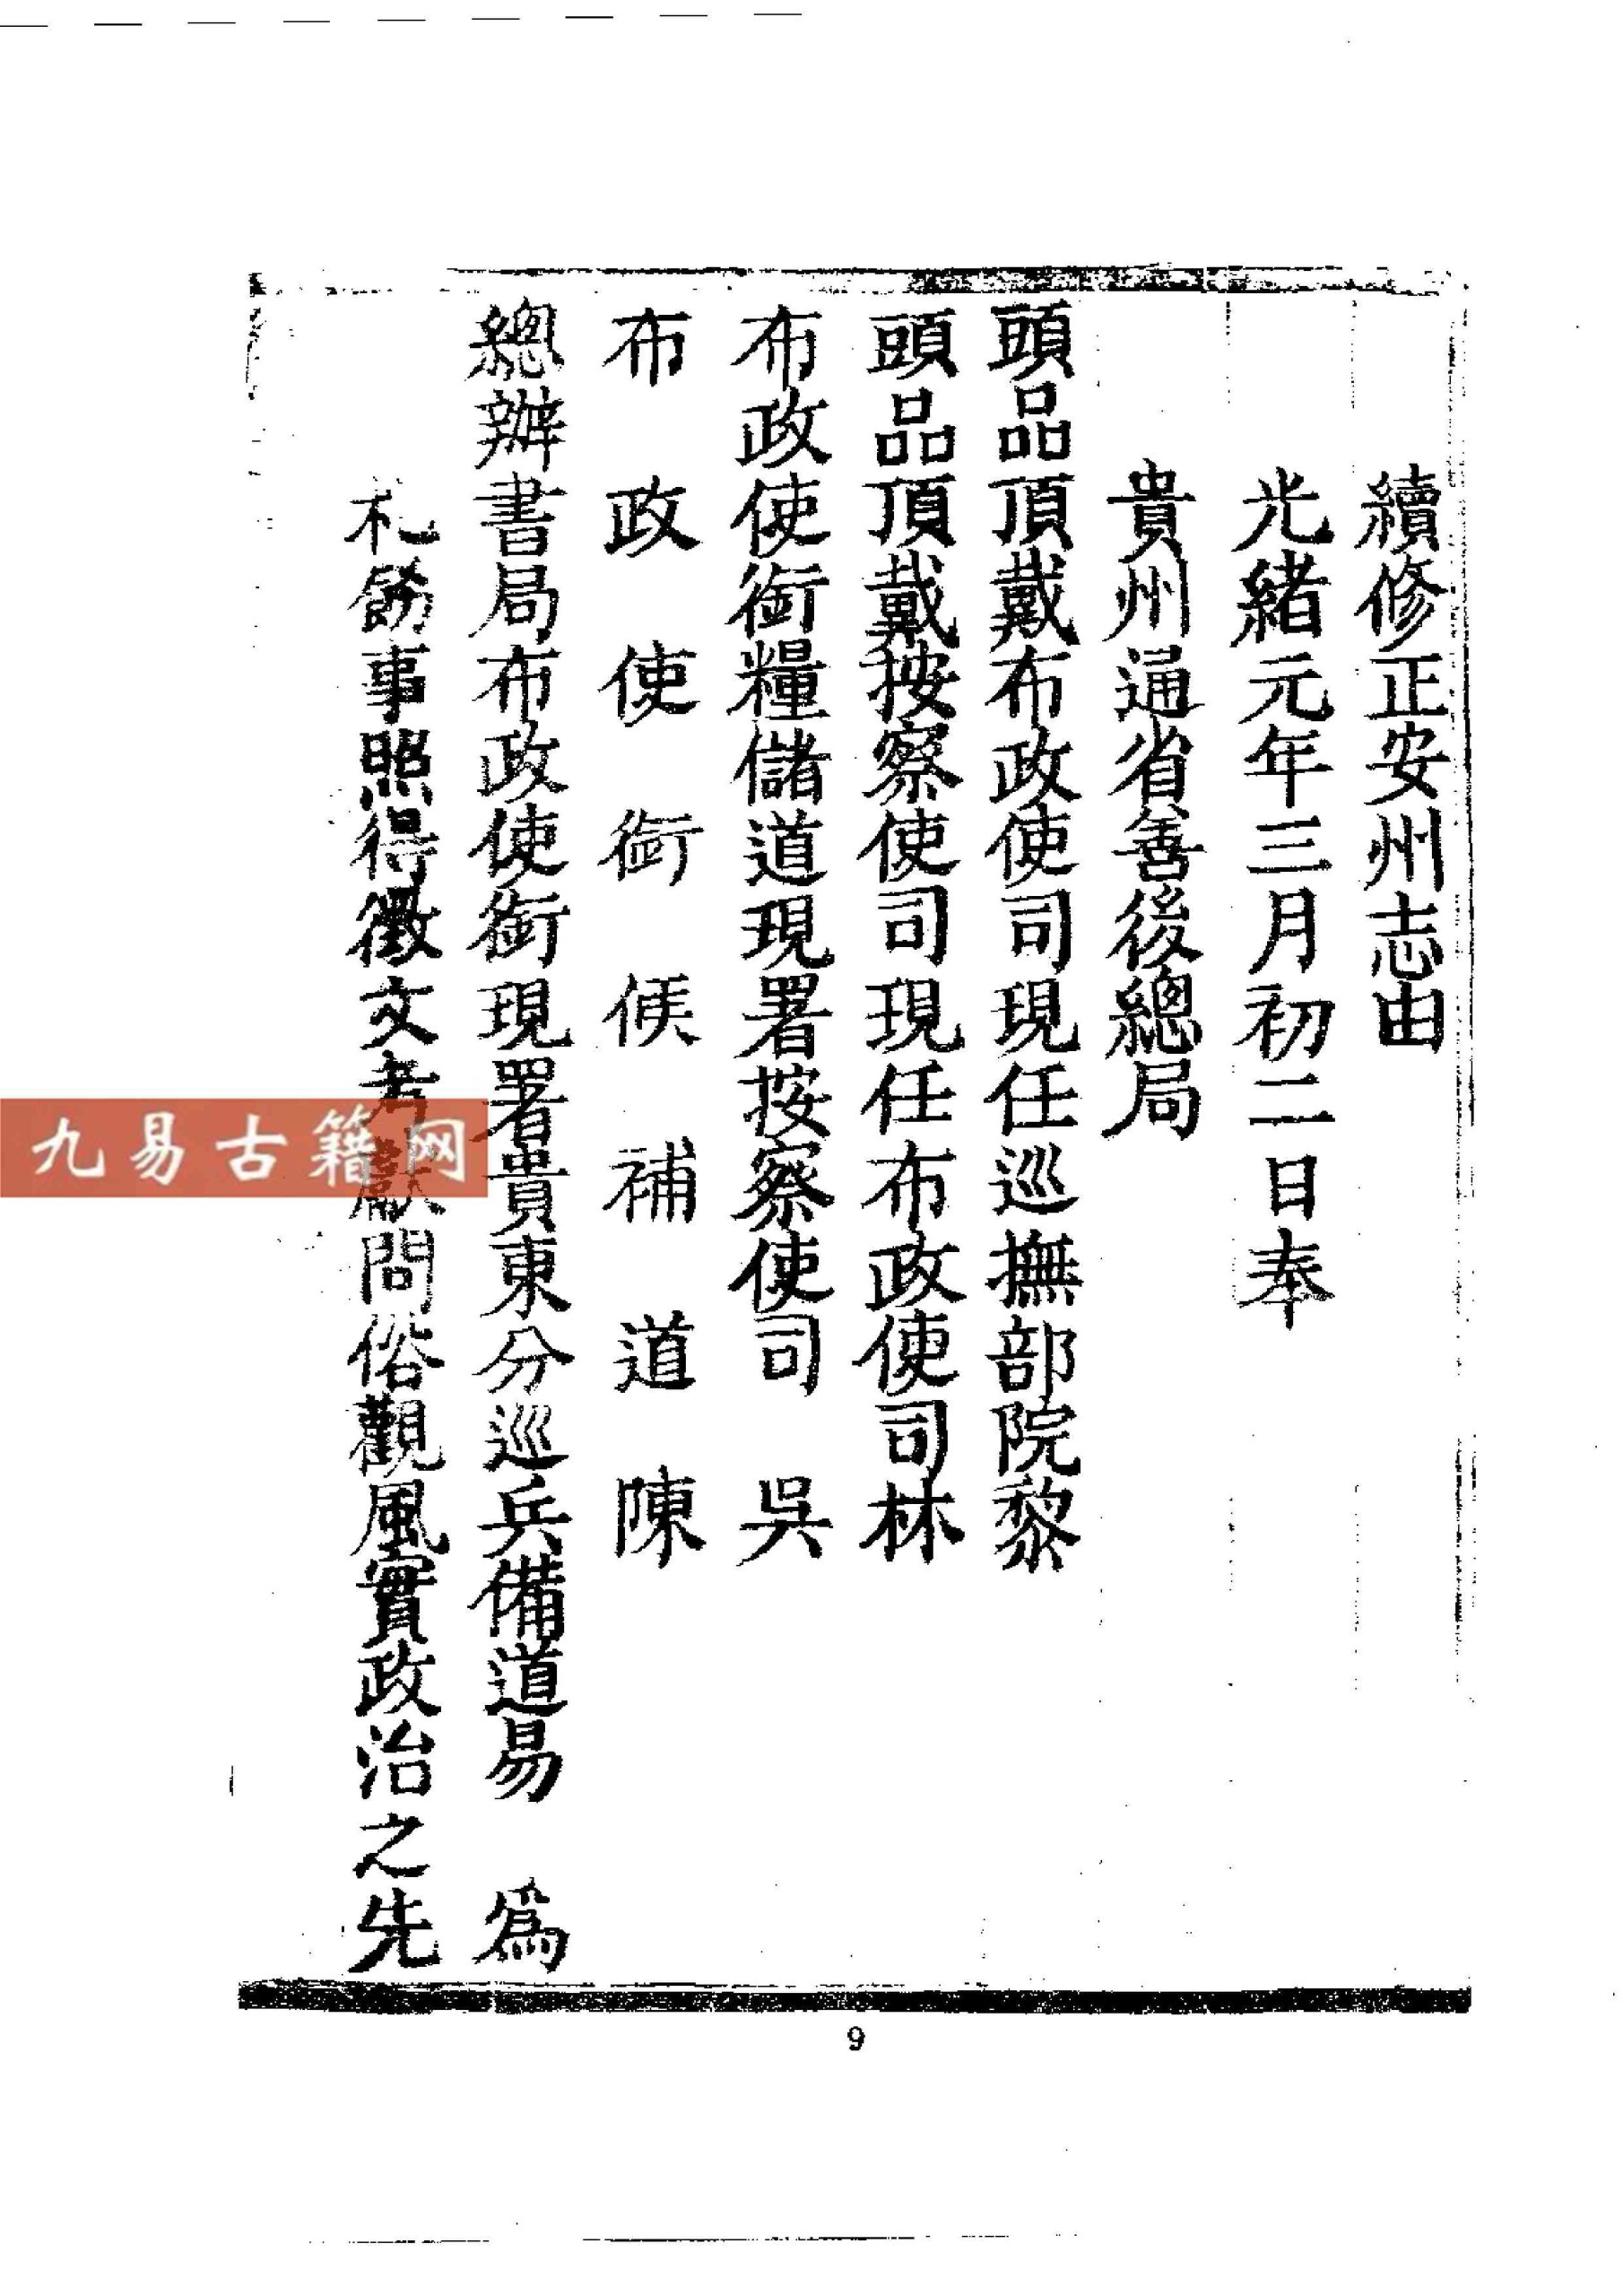 續修正安州志由
光緒元年三月初二日奉
貴州通省善後總局
頭品頂戴布政使司現任巡撫部院黎
頭品頂戴按察使司現任布政使司林
布政使銜糧儲道現署按察使司 吳
布政使銜候補道陳
總辦書局布政使銜現署貴東分巡兵備道易 爲
札飭事照得徵文考獻問俗觀風實政治之先
九易古籍网
9